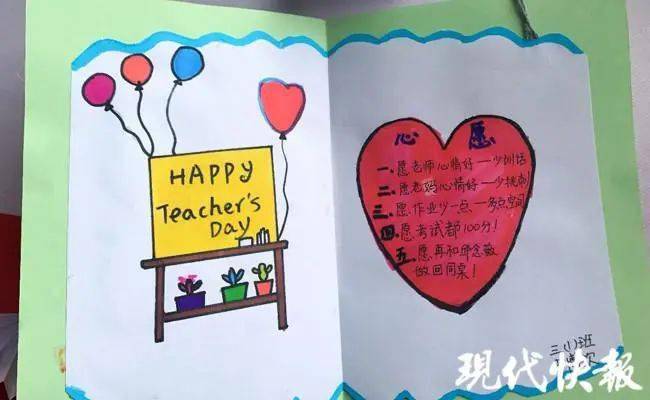 HAPPY
Teacher's
DAY
心愿
一、愿老师心情好——少训话
二、愿老妈心情好——少挑刺
三、愿作业少一点——多点空间
四、愿考试都100分!
五、愿再和邱念慈
做回同桌!
三(1)班
现代快報